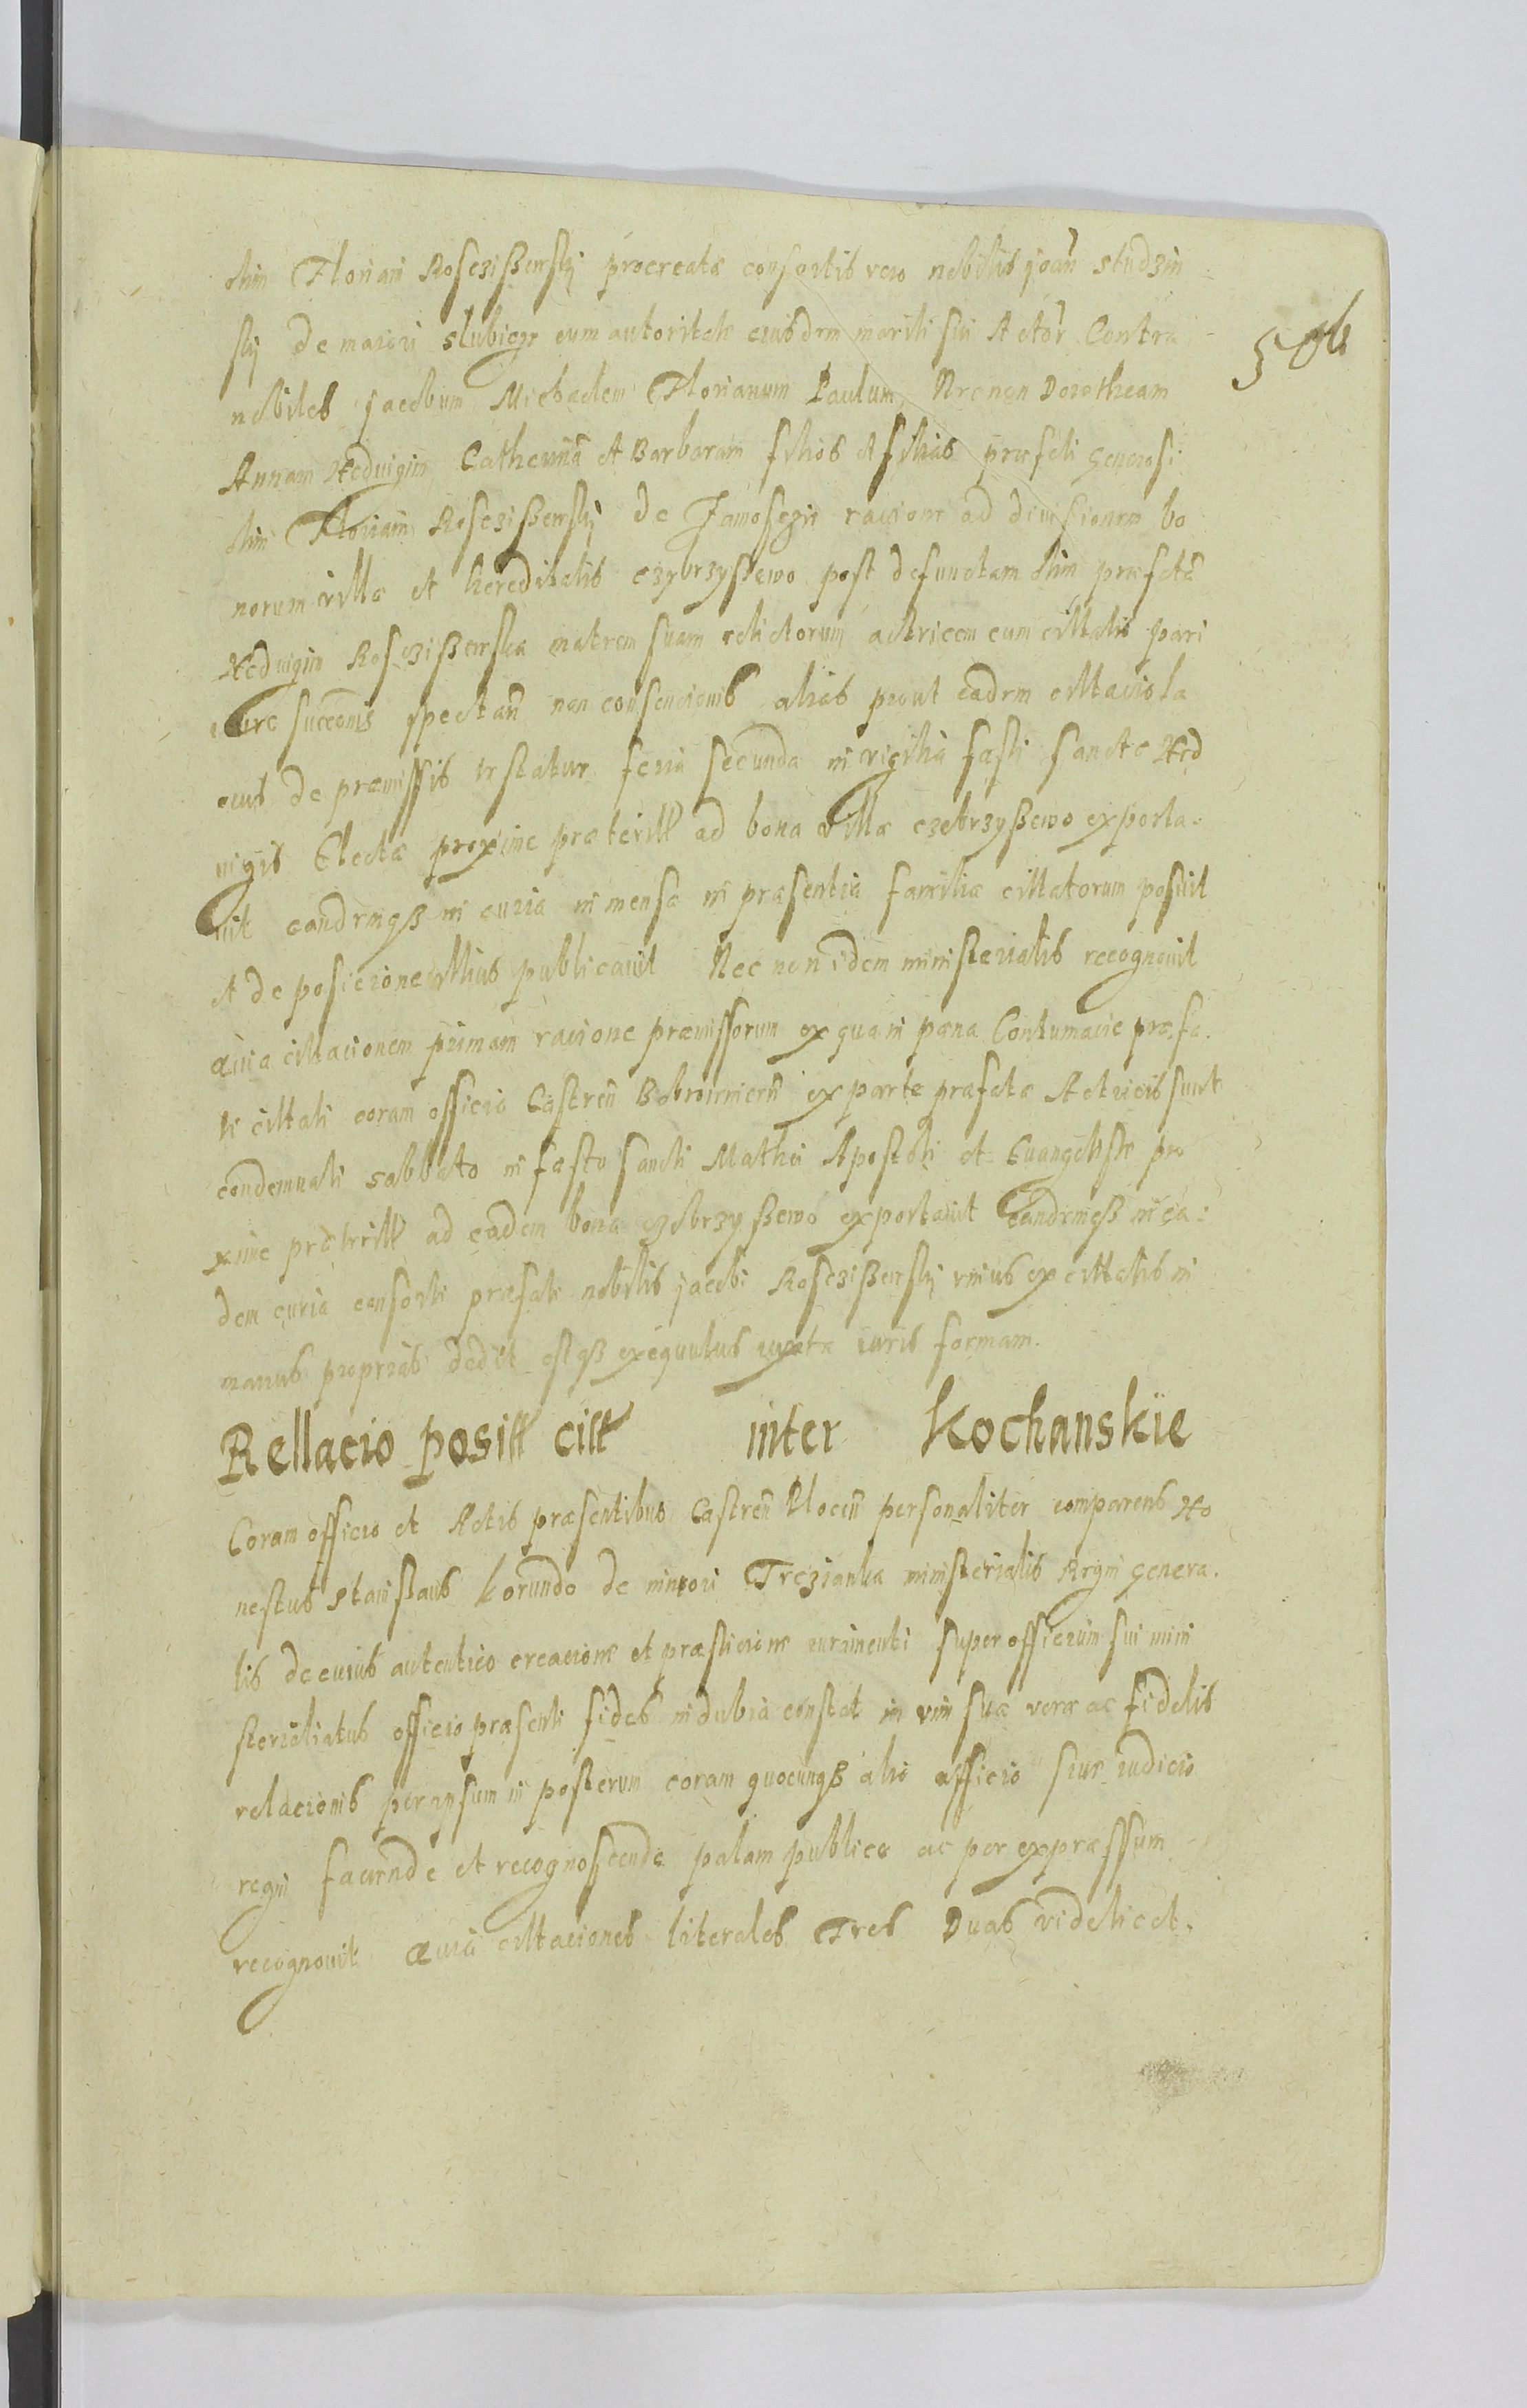 olim Floriani Rosczißewskÿ procreatæ consortis vero nobilis joañ studzin
skÿ de maiori slubicze cum autoritate eiusdem mariti sui Actoř Contra
504
nobiles jacobum Michaelem Florianum Paulum, Nec non Dorotheam
Annam Heduigim Catherinã et Barbaram filios et filias præfati Generosi
olim Floriani Rosczißewskÿ de racione ad diuisionem bo
norum villæ et hereditatis czybrzyßewo post defunctam olim præfatã
Heduigim Rosczißewska matrem suam relictorum actricem cum cittatis pari
iure succeonis spectañ non consencionis alias prout eadem cittacio la
cius de præmissis testatur feria secunda in vigilia festi sanctæ Hed
uigis Electæ proxime præteritt ad bona villæ czebrzyßewo exporta
uit eandemqß in curia in mensa in præsentia familiæ cittatorum posuit
et de posicione illius publicauit Nec non idem ministerialis recognouit
Quia cittacionem primam racione præmissorum ex qua in pæna Contumacie præfa
ti cittati coram officio Castreñ Bobrowniceñ ex parte præfatæ Actricis sunt
condemnati sabbato in festo sancti Mathei Apostoli et Euangelistæ pro
xime præteritt ad eadem bona czebrzyßewo exportauit Eandemqß in ea
dem curia consorti præfati nobilis jacobi Rosczißewskÿ vnius ex cittatis in
manus proprias dedit estqß exequutus iuxta iuris formam.
Rellacio Positt citt inter Kochanskïe
Coram officio et Actis præsentibus Castreñ Ploceñ personaliter comparens Ho
nestus stanislaus korundo de minori Trezianka ministerialis Regni genera
lis de cuius autentico creacione et præsticione iuramenti super officium sui mini
sterialiatus officio præsenti fides indubia constat in vim suæ veræ ac fidelis
relacionis per ipsum in posterum coram quocunqß alio officio siue iudicio
regni faciendæ et recognoscendæ palam publice ac per expræssum
recognouit Quia cittaciones literales Tres Duas videlicet